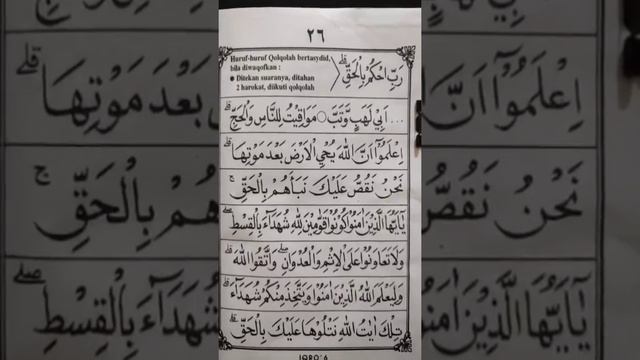 ٢٦
Huruf-huruf Qolqolah bertasydid,
bila diwaqofkan :
● Ditekan suaranya, ditahan
2 harokat, diikuti qolqolah
رَبِّ احْكُمْ بِالْحَقِّ ۗ
... اَبِيْ لَهَبٍ وَّتَبَّ ○ مَوَاقِيْتُ لِلنَّاسِ وَالْحَجِّ ۗ
اِعْلَمُوْٓا اَنَّ اللّٰهَ يُحْيِ الْاَرْضَ بَعْدَ مَوْتِهَا ۗ
نَحْنُ نَقُصُّ عَلَيْكَ نَبَاَهُمْ بِالْحَقِّ ۚ
يٰٓاَيُّهَا الَّذِيْنَ اٰمَنُوْا كُوْنُوْا قَوَّامِيْنَ لِلّٰهِ شُهَدَاۤءَ بِالْقِسْطِ ۖ
وَلَا تَعَاوَنُوْا عَلَى الْاِثْمِ وَالْعُدْوَانِ ۖ وَاتَّقُوا اللّٰهَ ۗ
وَلِيَعْلَمَ اللّٰهُ الَّذِيْنَ اٰمَنُوْا وَيَتَّخِذَ مِنْكُمْ شُهَدَاۤءَ ۗ
تِلْكَ اٰيٰتُ اللّٰهِ نَتْلُوْهَا عَلَيْكَ بِالْحَقِّ ۗ